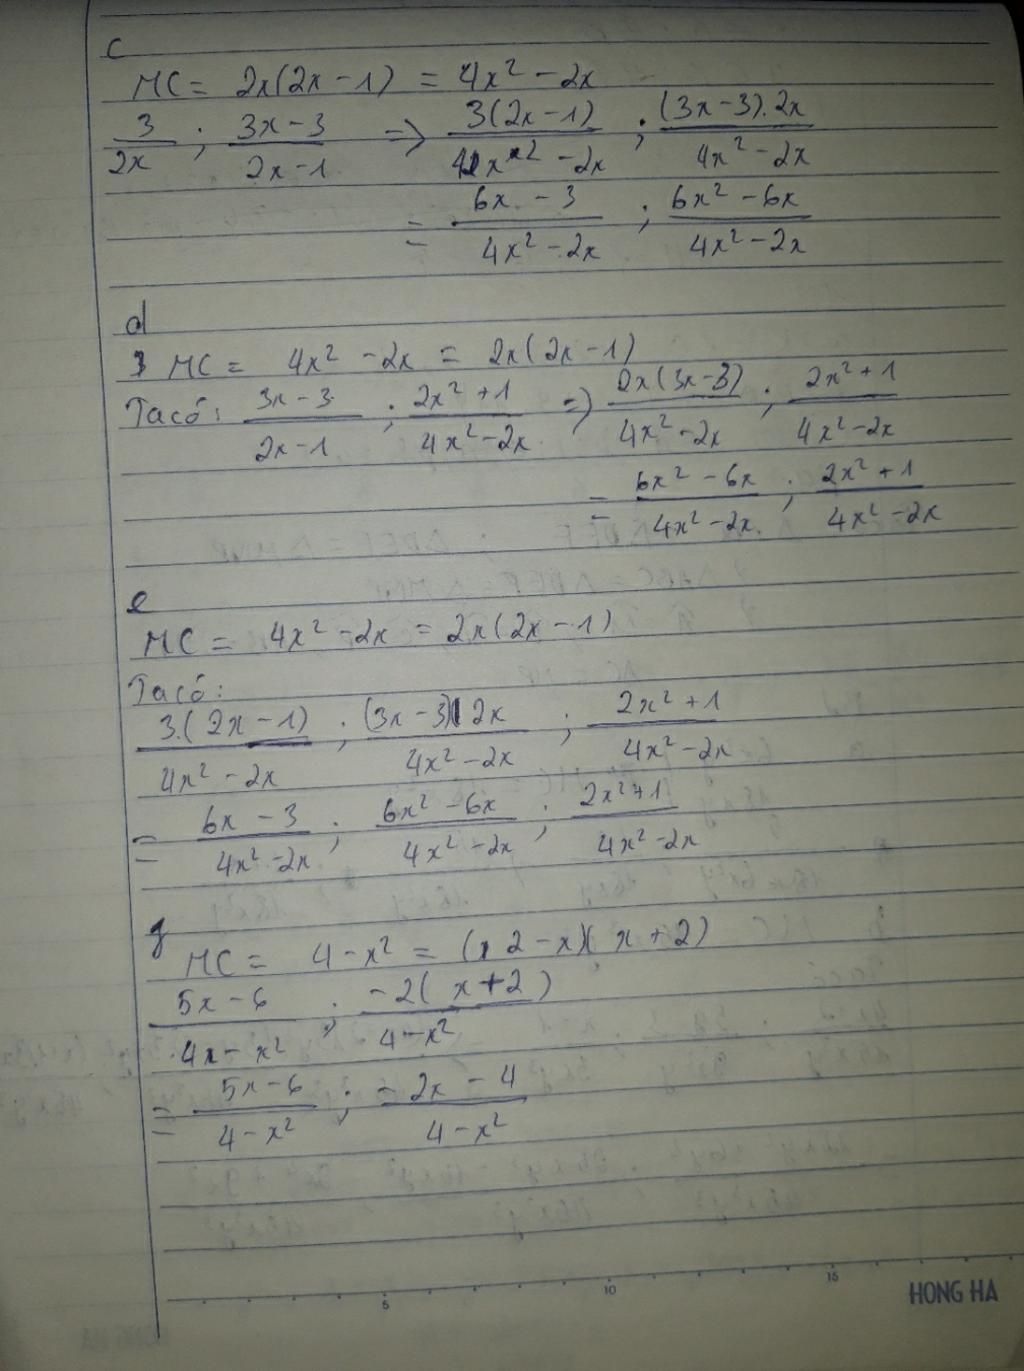 c
MC = 2x(2x - 1) = 4x² - 2x
3/2x ; (3x - 3)/(2x - 1) => 3(2x - 1)/(4x² - 2x) ; (3x - 3).2x/(4x² - 2x)
= (6x - 3)/(4x² - 2x) ; (6x² - 6x)/(4x² - 2x)
d
MC = 4x² - 2x = 2x(2x - 1)
Ta có: (3x - 3)/(2x - 1) ; (2x² + 1)/(4x² - 2x) => 2x(3x - 3)/(4x² - 2x) ; (2x² + 1)/(4x² - 2x)
= (6x² - 6x)/(4x² - 2x) ; (2x² + 1)/(4x² - 2x)
e
MC = 4x² - 2x = 2x(2x - 1)
Ta có:
3.(2x - 1)/(4x² - 2x) ; (3x - 3) 2x/(4x² - 2x) ; (2x² + 1)/(4x² - 2x)
= (6x - 3)/(4x² - 2x) ; (6x² - 6x)/(4x² - 2x) ; (2x² + 1)/(4x² - 2x)
g
MC = 4 - x² = (2 - x)(x + 2)
(5x - 6)/(4x - x²) ; -2(x + 2)/(4 - x²)
= (5x - 6)/(4 - x²) ; (-2x - 4)/(4 - x²)
5 10 15
HONG HA